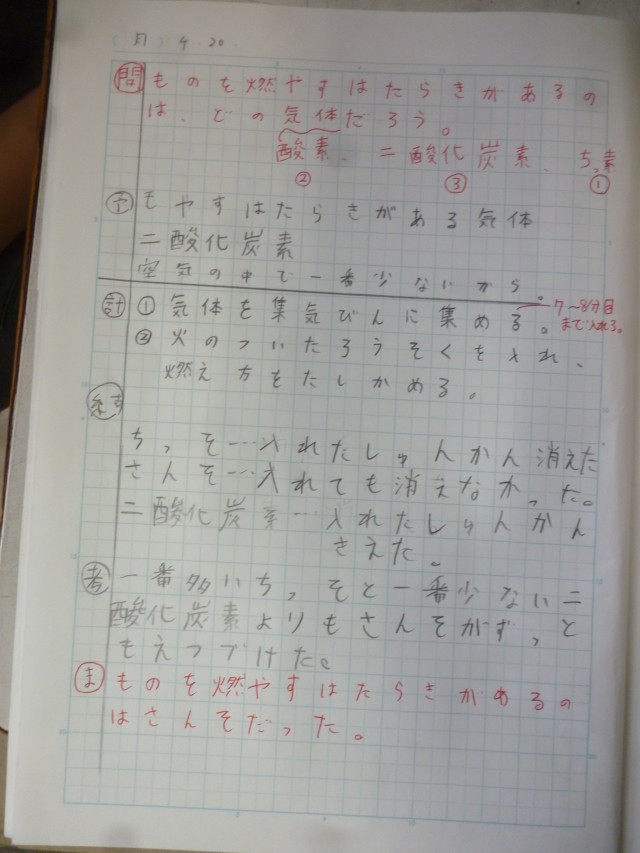 (月) 4.20.
問 ものを燃やすはたらきがあるの
は、どの気体だろう。
酸素、二酸化炭素、ちっ素
② ③ ①
予 もやすはたらきがある気体
二酸化炭素
空気の中で一番少ないから。
計 ① 気体を集気びんに集める。 7〜8分目
まで入れる。
② 火のついたろうそくを入れ、
燃え方をたしかめる。
結
ちっそ…入れたしゅんかん消えた
さんそ…入れても消えなかった。
二酸化炭素…入れたしゅんかん
きえた。
考 一番多いちっそと一番少ない二
酸化炭素よりもさんそがずっと
もえつづけた。
ま ものを燃やすはたらきがあるの
はさんそだった。